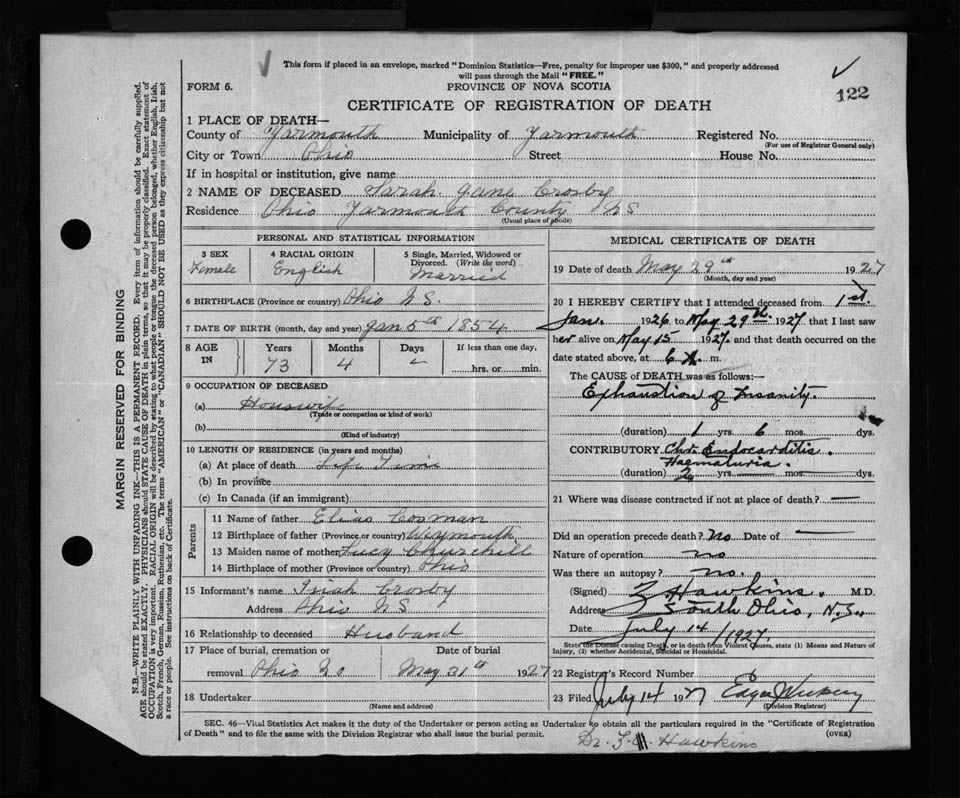 This form if placed in an envelope, marked "Dominion Statistics—Free, penalty for improper use $300," and properly addressed
will pass through the Mail "FREE."
122
FORM 6.
PROVINCE OF NOVA SCOTIA
CERTIFICATE OF REGISTRATION OF DEATH
1 PLACE OF DEATH—
County of Yarmouth Municipality of Yarmouth Registered No.
(For use of Registrar General only)
City or Town Ohio Street House No.
If in hospital or institution, give name
2 NAME OF DECEASED Sarah Jane Crosby
Residence Ohio Yarmouth County NS
(Usual place of abode)
PERSONAL AND STATISTICAL INFORMATION
3 SEX 4 RACIAL ORIGIN 5 Single, Married, Widowed or
Divorced. (Write the word)
Female English Married
6 BIRTHPLACE (Province or country) Ohio N.S.
7 DATE OF BIRTH (month, day and year) Jan 5th 1854
8 AGE IN Years Months Days If less than one day,
73 4 hrs. or min.
9 OCCUPATION OF DECEASED
(a) Houswife
(Trade or occupation or kind of work)
(b)
(Kind of industry)
10 LENGTH OF RESIDENCE (in years and months)
(a) At place of death Life Time
(b) In province
(c) In Canada (if an immigrant)
Parents
11 Name of father Elias Cosman
12 Birthplace of father (Province or country) Weymouth
13 Maiden name of mother Lucy Churchill
14 Birthplace of mother (Province or country) Ohio
15 Informant's name Crosby
Address Ohio NS
16 Relationship to deceased Husband
17 Place of burial, cremation or Date of burial
removal Ohio May 31st 1927
18 Undertaker
(Name and address)
MEDICAL CERTIFICATE OF DEATH
19 Date of death May 29th 1927
(Month, day and year)
20 I HEREBY CERTIFY that I attended deceased from 1st.
Jan. 1926 to May 29th. 1927 that I last saw
her alive on May 15 1927. and that death occurred on the
date stated above, at 6 A. m.
The CAUSE of DEATH was as follows:—
Exhaustion of Insanity.
(duration) 1 yrs. 6 mos. dys.
CONTRIBUTORY Chr. Endocarditis
Haematuria.
(duration) 2 yrs. mos. dys.
21 Where was disease contracted if not at place of death? —
Did an operation precede death? No Date of —
Nature of operation no
Was there an autopsy? no.
(Signed) Hawkins. M.D.
Address South Ohio, N.S.
Date July 14/1927.
State the Disease causing Death, or in death from Violent Causes, state (1) Means and Nature of
Injury, (2) whether Accidental, Suicidal or Homicidal.
22 Registrar's Record Number 6
23 Filed July 14 1927 Edgar
(Division Registrar)
SEC. 46—Vital Statistics Act makes it the duty of the Undertaker or person acting as Undertaker to obtain all the particulars required in the "Certificate of Registration
of Death" and to file the same with the Division Registrar who shall issue the burial permit. (OVER)
Dr. Hawkins
MARGIN RESERVED FOR BINDING
N.B.—WRITE PLAINLY WITH UNFADING INK—THIS IS A PERMANENT RECORD. Every item of information should be carefully supplied.
AGE should be stated EXACTLY. PHYSICIANS should STATE CAUSE OF DEATH in plain terms, so that it may be properly classified. Exact statement of
OCCUPATION is very important. RACIAL ORIGIN will be described by stating to what people or tongue the deceased person belonged, whether English, Irish,
Scotch, French, German, Russian, Ruthenian, etc. The terms "AMERICAN" or "CANADIAN" SHOULD NOT BE USED as they express citizenship but not
a race or people. See instructions on back of Certificate.